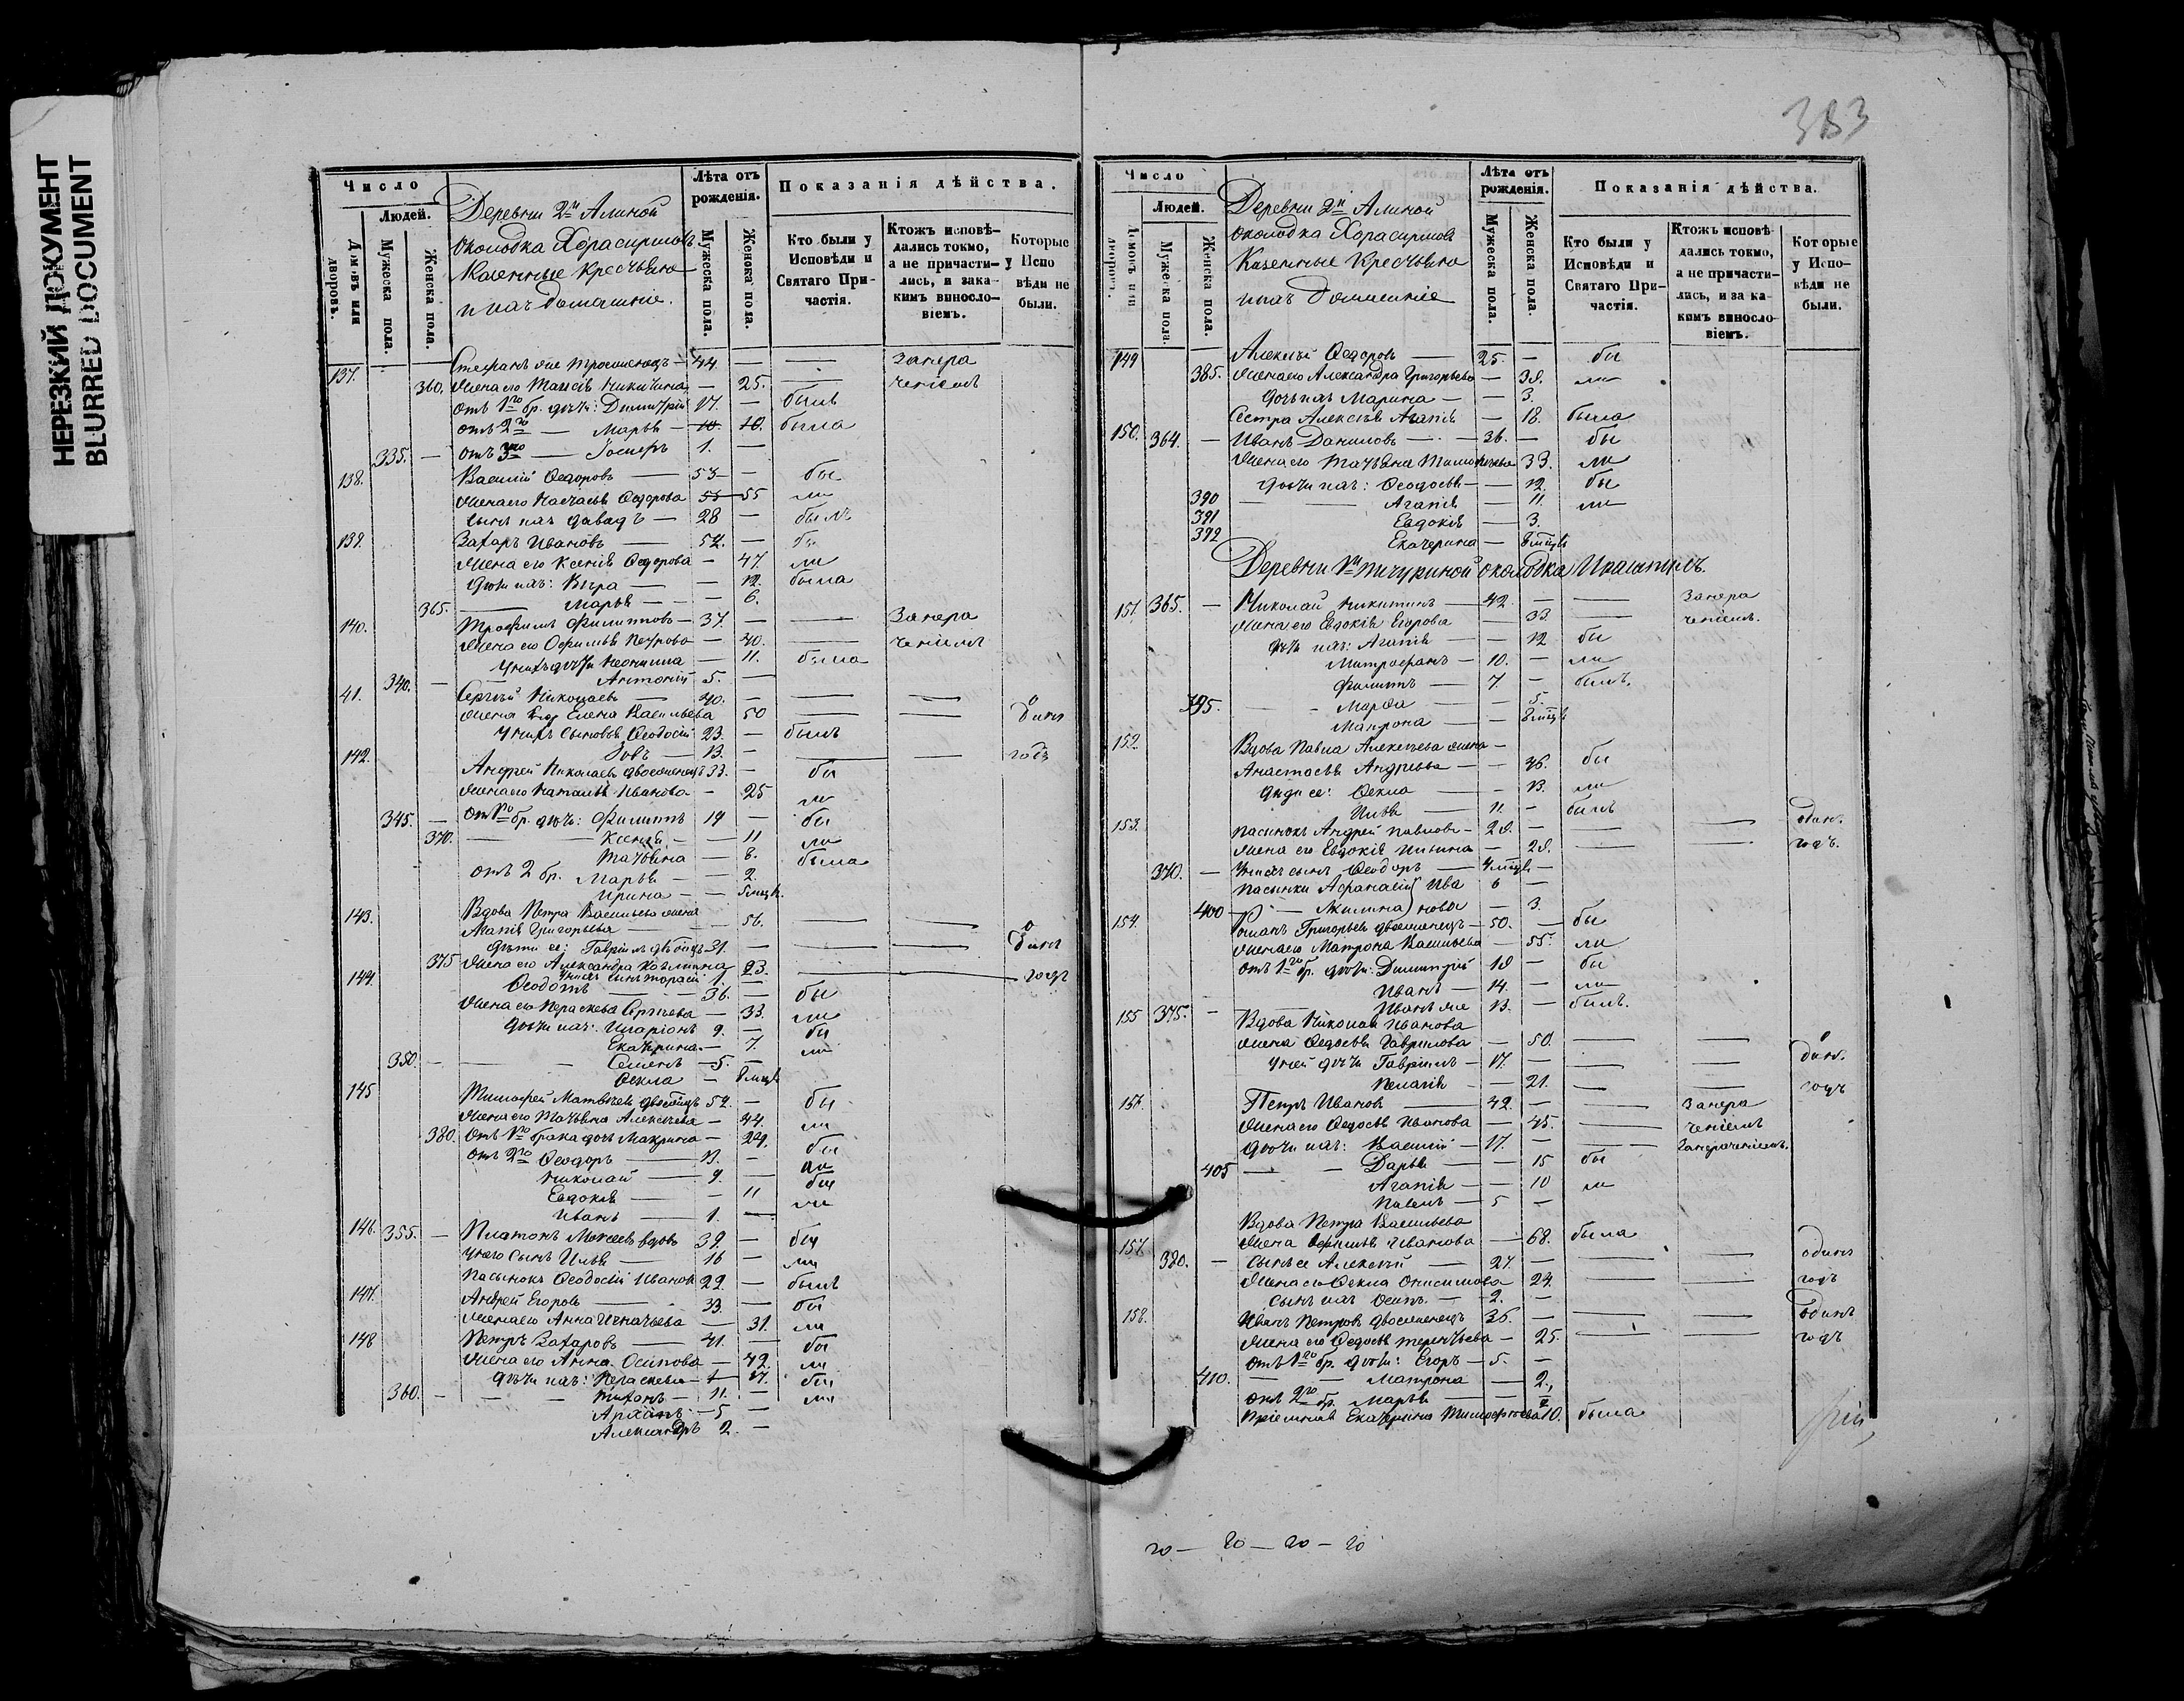 НЕРЕЗКИЙ ДОКУМЕНТ
BLURRED DOCUMENT
Число
Людей.
Домовъ или дворовъ.
Мужеска пола.
Женска пола.
Деревни 2й Алиной
околодка Хорасиршовъ
Казенные Крестьяна
и ихъ домашніе.
Лѣта отъ рожденія.
Мужеска пола.
Женска пола.
Показанія дѣйства.
Кто были у Исповѣди и Святаго Причастія.
Ктожъ исповѣдались токмо, а не причастились, и за какимъ винословіемъ.
Которые у Исповѣди не были.
Стефанъ 44. — — занера
137. 360. Жена его Таисія Никитина — 25. — ченіемъ
отъ 1го бр. дѣти: Димитрій 17. — былъ
отъ 2го — Марья — 10. была
335. — отъ 3го — Іосифъ 1. —
138. Василій Ѳедоровъ — 53 — бы
Жена его Настасья Ѳедорова 55 ли
сынъ ихъ Давидъ — 28 — былъ
139. Захаръ Ивановъ — 52. — бы
Жена его Ксенія Ѳедорова — 47. ли
дѣти ихъ: Вѣра — — 12. была
365. — Марья — — 6.
140. Трофимъ Филипповъ — 37. — — Занера
Жена его Офимья Петрова — 40. — ченіемъ
У нихъ дѣти Неонила — 11. была
340. — Антоній 5. —
41. Сергѣй Николаевъ — 40. — — —
Жена его Елена Васильева 50 — — одинъ
У нихъ сыновья Ѳеодосій 23. — былъ
Іовъ — 13. — — — годъ
142. Андрей Николаевъ двоеженецъ 33. — бы
Жена его Наталья Иванова — 25 ли
345. — Отъ 1го бр. дѣти: Филиппъ 14 — бы
370. — Ксенія — — 11 ли
Татьяна — 8. была
отъ 2 бр. Марья — 2.
Ирина — — 5 мцъ.
143. Вдова Петра Васильева жена
Агапія Григорьева — — 56. — —
дѣти ея: Гавріилъ 31. — — — одинъ
375 Жена его Александра Козмина 23. — — годъ
144. Ѳеодотъ — — 36. — бы
Жена его Параскева Сергѣева — 33. ли
дѣти ихъ: Иларіонъ 9. — бы
Екатерина — 7. ли
350. — — Семенъ — 5. —
Ѳекла — 8 мцъ
145 Тимофей Матвѣевъ 52. — бы
Жена его Татьяна Алексѣева — 44. ли
380. Отъ 1го брака дочь Макрина — 24. бы
отъ 2го Ѳеодоръ — 13. — ли
Николай — 9. — бы
Евдокія — — 11 ли
Иванъ — 1. —
146. 355. — Платонъ Моисеевъ вдовъ 39. — бы
У него сынъ Илья — 16 — ли
Пасынокъ Ѳеодосій Ивановъ 22. — былъ
147. Андрей Егоровъ — 33. — бы
Жена его Анна Игнатьева — 31. ли
148 Петръ Захаровъ — 41. — бы
Жена его Анна Осипова — 42. ли
дѣти ихъ: Параскева — 17. бы
360. — — Тихонъ — 11. — ли
Архипъ — 5 —
Александръ 2. —
383
Число
Людей.
Домовъ или дворовъ.
Мужеска пола.
Женска пола.
Деревни 2й Алиной
околодка Хорасиршовъ
Казенные Крестьяна
и ихъ домашніе
Лѣта отъ рожденія.
Мужеска пола.
Женска пола.
Показанія дѣйства.
Кто были у Исповѣди и Святаго Причастія.
Ктожъ исповѣдались токмо, а не причастились, и за какимъ винословіемъ.
Которые у Исповѣди не были.
149 Алексѣй Ѳедоровъ — 25. — бы
385. Жена его Александра Григорьева — 30. ли
Дочь ихъ Марина — — 3.
Сестра Алексѣя Агапія — 18. была
150. 364. — Иванъ Даниловъ — 36. — бы
Жена его Татьяна Тимофеева 33. ли
дѣти ихъ: Ѳеодосья — — 12. бы
390 — Агапія — 11. ли
391 Евдокія — 3.
392 Екатерина — 8 мцъ
Деревни 1й Пичуриной околодка
151 365. — Николай Никитинъ — 42. — — Занера
Жена его Евдокія Егорова — 33. — ченіемъ.
дѣти ихъ: Агапія — — 12 бы
Митрофанъ — 10. — ли
Филиппъ — 7. — былъ.
395. — - Марѳа — — 5.
Матрона — — 8 мцъ
152. Вдова Павла Алексѣева жена —
Анастасья Андреева — — 46. бы
дѣти ее: Ѳекла — — 13. ли
Илья — 11. — былъ
153. Пасынокъ Андрей Павловъ — 20. — — — один.
Жена его Евдокія Ильина — 20. — — годъ.
370. — У нихъ сынъ Ѳеодоръ — 4 мцъ —
Пасынки Афанасій Ива 6 —
400 — Акилина нова — 3.
154. Романъ Григорьевъ двоеженецъ — 50. — бы
Жена его Матрона Васильева — 55. ли
Отъ 1го бр. дѣти: Димитрій 18 — бы
Иванъ — 14. — ли
155 375. — Иванъ же 13. — былъ.
Вдова Николая Иванова
жена Ѳедосья Гаврилова — 50. — —
У ней дѣти Гавріилъ — 17. — — один.
Пелагія — — 21. — — годъ
156. Петръ Ивановъ — 42. — — Занера
Жена его Ѳедосья Иванова — 45. — ченіемъ
Дѣти ихъ: Василій — 17. — —
405 — — Дарья — — 15 бы
Агапія — — 10 ли
Павелъ — 5 —
Вдова Петра Васильева
157. Жена Офимья Иванова — 68. была
380. — Сынъ ее Алексѣй — 27. — — — одинъ
Жена его Ѳекла Онисимова 24. — — годъ
Сынъ ихъ Осипъ — 2. —
158. Иванъ Петровъ двоеженецъ 36. — — — Одинъ
Жена его Ѳедосья Терентьева — 25. — — годъ
отъ 1го бр. дѣти: Егоръ — 5. —
410. — — Матрона — 2.
отъ 2го бр. Марья — —
Пріемная Екатерина Тимофеева 10. была
20 — 20 — 20 — 20